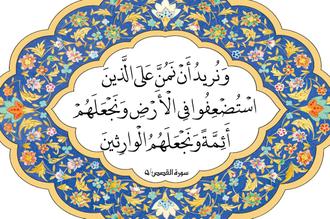 وَنُرِيدُ أَنْ نَمُنَّ عَلَى الَّذِينَ
اسْتُضْعِفُوا فِي الْأَرْضِ وَنَجْعَلَهُمْ
أَئِمَّةً وَنَجْعَلَهُمُ الْوَارِثِينَ
سورة القصص/٥